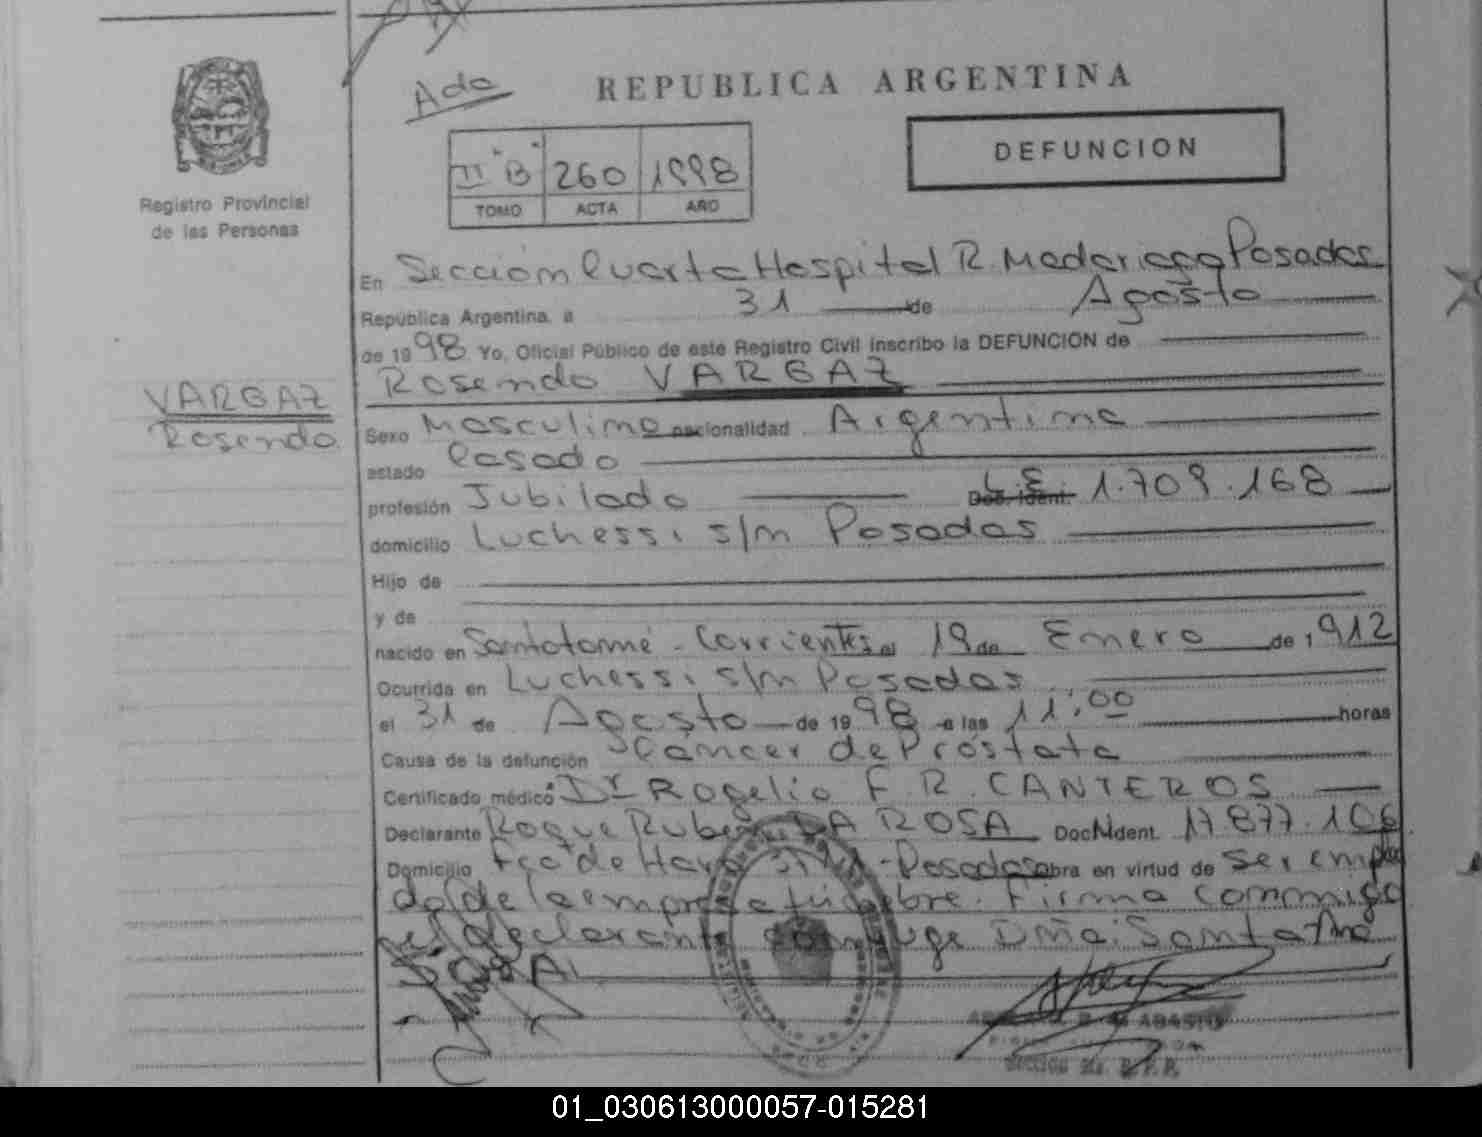 Ada
REPUBLICA ARGENTINA
DEFUNCION
II "B" 260 1998
TOMO ACTA AÑO
Registro Provincial
de las Personas
En Sección Cuarta Hospital R. Madariaga Posadas
República Argentina, a 31 de Agosto
de 1998 Yo, Oficial Público de este Registro Civil inscribo la DEFUNCION de
Rosendo VARGAZ
VARGAZ
Rosendo
Sexo Masculino nacionalidad Argentina
estado Casado
profesión Jubilado L.E. Doc. Ident. 1.709.168
domicilio Luchessi s/n Posadas
Hijo de
y de
nacido en Santo tomé - Corrientes el 19 de Enero de 1912
Ocurrida en Luchessi s/n Posadas
el 31 de Agosto de 1998 a las 11,00 horas
Causa de la defunción Cancer de Próstata
Certificado médico Dr Rogelio F. R. CANTEROS
Declarante Roque Ruben DA ROSA Doc N Ident. 17.877.106
Domicilio Fco de Haro - Posadas obra en virtud de ser emplea
do de la empresa fúnebre. Firma conmigo
el declarante conyuge Dña. Santa
01_030613000057-015281